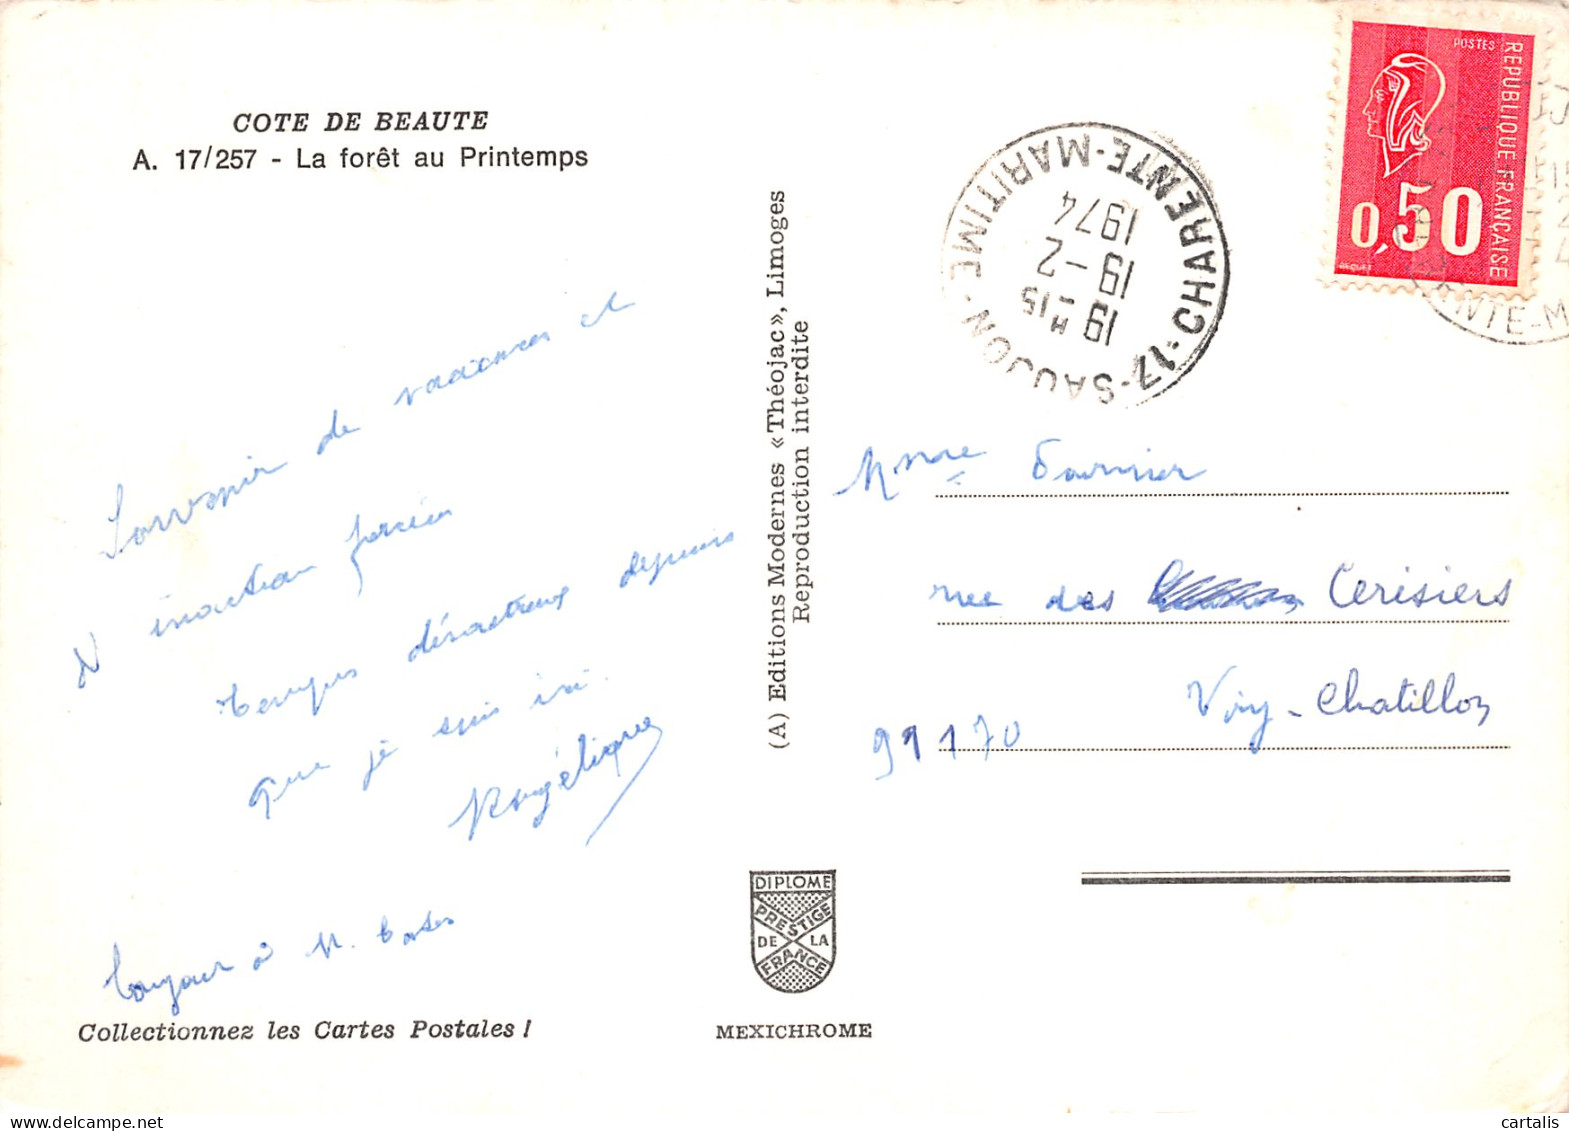 COTE DE BEAUTE
A. 17/257 - La forêt au Printemps
Souvenir de vacances et
d'inaction forcée
Temps désastreux depuis
que je suis ici.
Angélique
Bonjour à M.
Collectionnez les Cartes Postales !
(A) Editions Modernes «Théojac», Limoges
Reproduction interdite
DIPLOME
PRESTIGE
DE LA
FRANCE
MEXICHROME
17-SAUJON-CHARENTE-MARITIME
19 H -15
19 -2
1974
POSTES
REPUBLIQUE FRANÇAISE
0,50
BEQUET
NTE-M
Mme Fournier
rue des Cerisiers
Viry-Chatillon
91170
cartalis